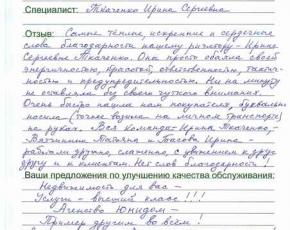 Специалист: Ткаченко Ирина Сергеевна
Отзыв: Самые тёплые искренние и сердечные
слова благодарности нашему риэлтору - Ирине
Сергеевне Ткаченко. Она просто обаяла своей
энергичностью, красотой, ответственностью, тактич-
ностью и предупредительностью. Ни на минуту
не оставляла без своего чуткого внимания.
Очень быстро нашла нам покупателя, буквально
носила (точнее возила на личном транспорте)
на руках. Вся команда: Ирина Ткаченко,
Татьяна и Ирина -
работали дружно, слаженно, с уважением друг к
другу и к клиентам. Нет слов благодарности!
Ваши предложения по улучшению качества обслуживания:
Недвижимость для вас -
Услуги - высший класс!!!
Агенство Юнидом -
Пример другим во всём!